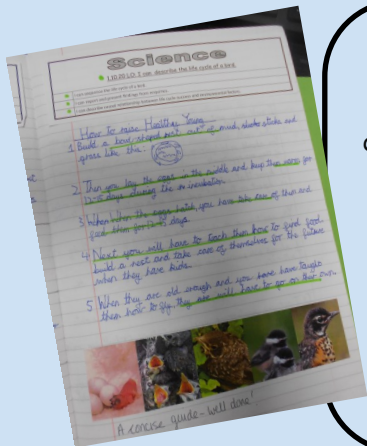 Science
1.10.20 LO: I can describe the life cycle of a bird.
I can sequence the life cycle of a bird.
How to raise Healthy Young
1. Build a bowl-shaped nest out of mud, sticks and
grass like this:
2. Then you lay the eggs in the middle and keep them warm for
12-15 days during the incubation.
3. When the eggs hatch, you have to take care of them and
feed them for days.
4. Next you will have to teach them how to find food
build a nest and take care of themselves for the future
when they have kids.
5. When they are old enough and you have taught
them how to fly they will have to go on their own.
A concise guide - well done!